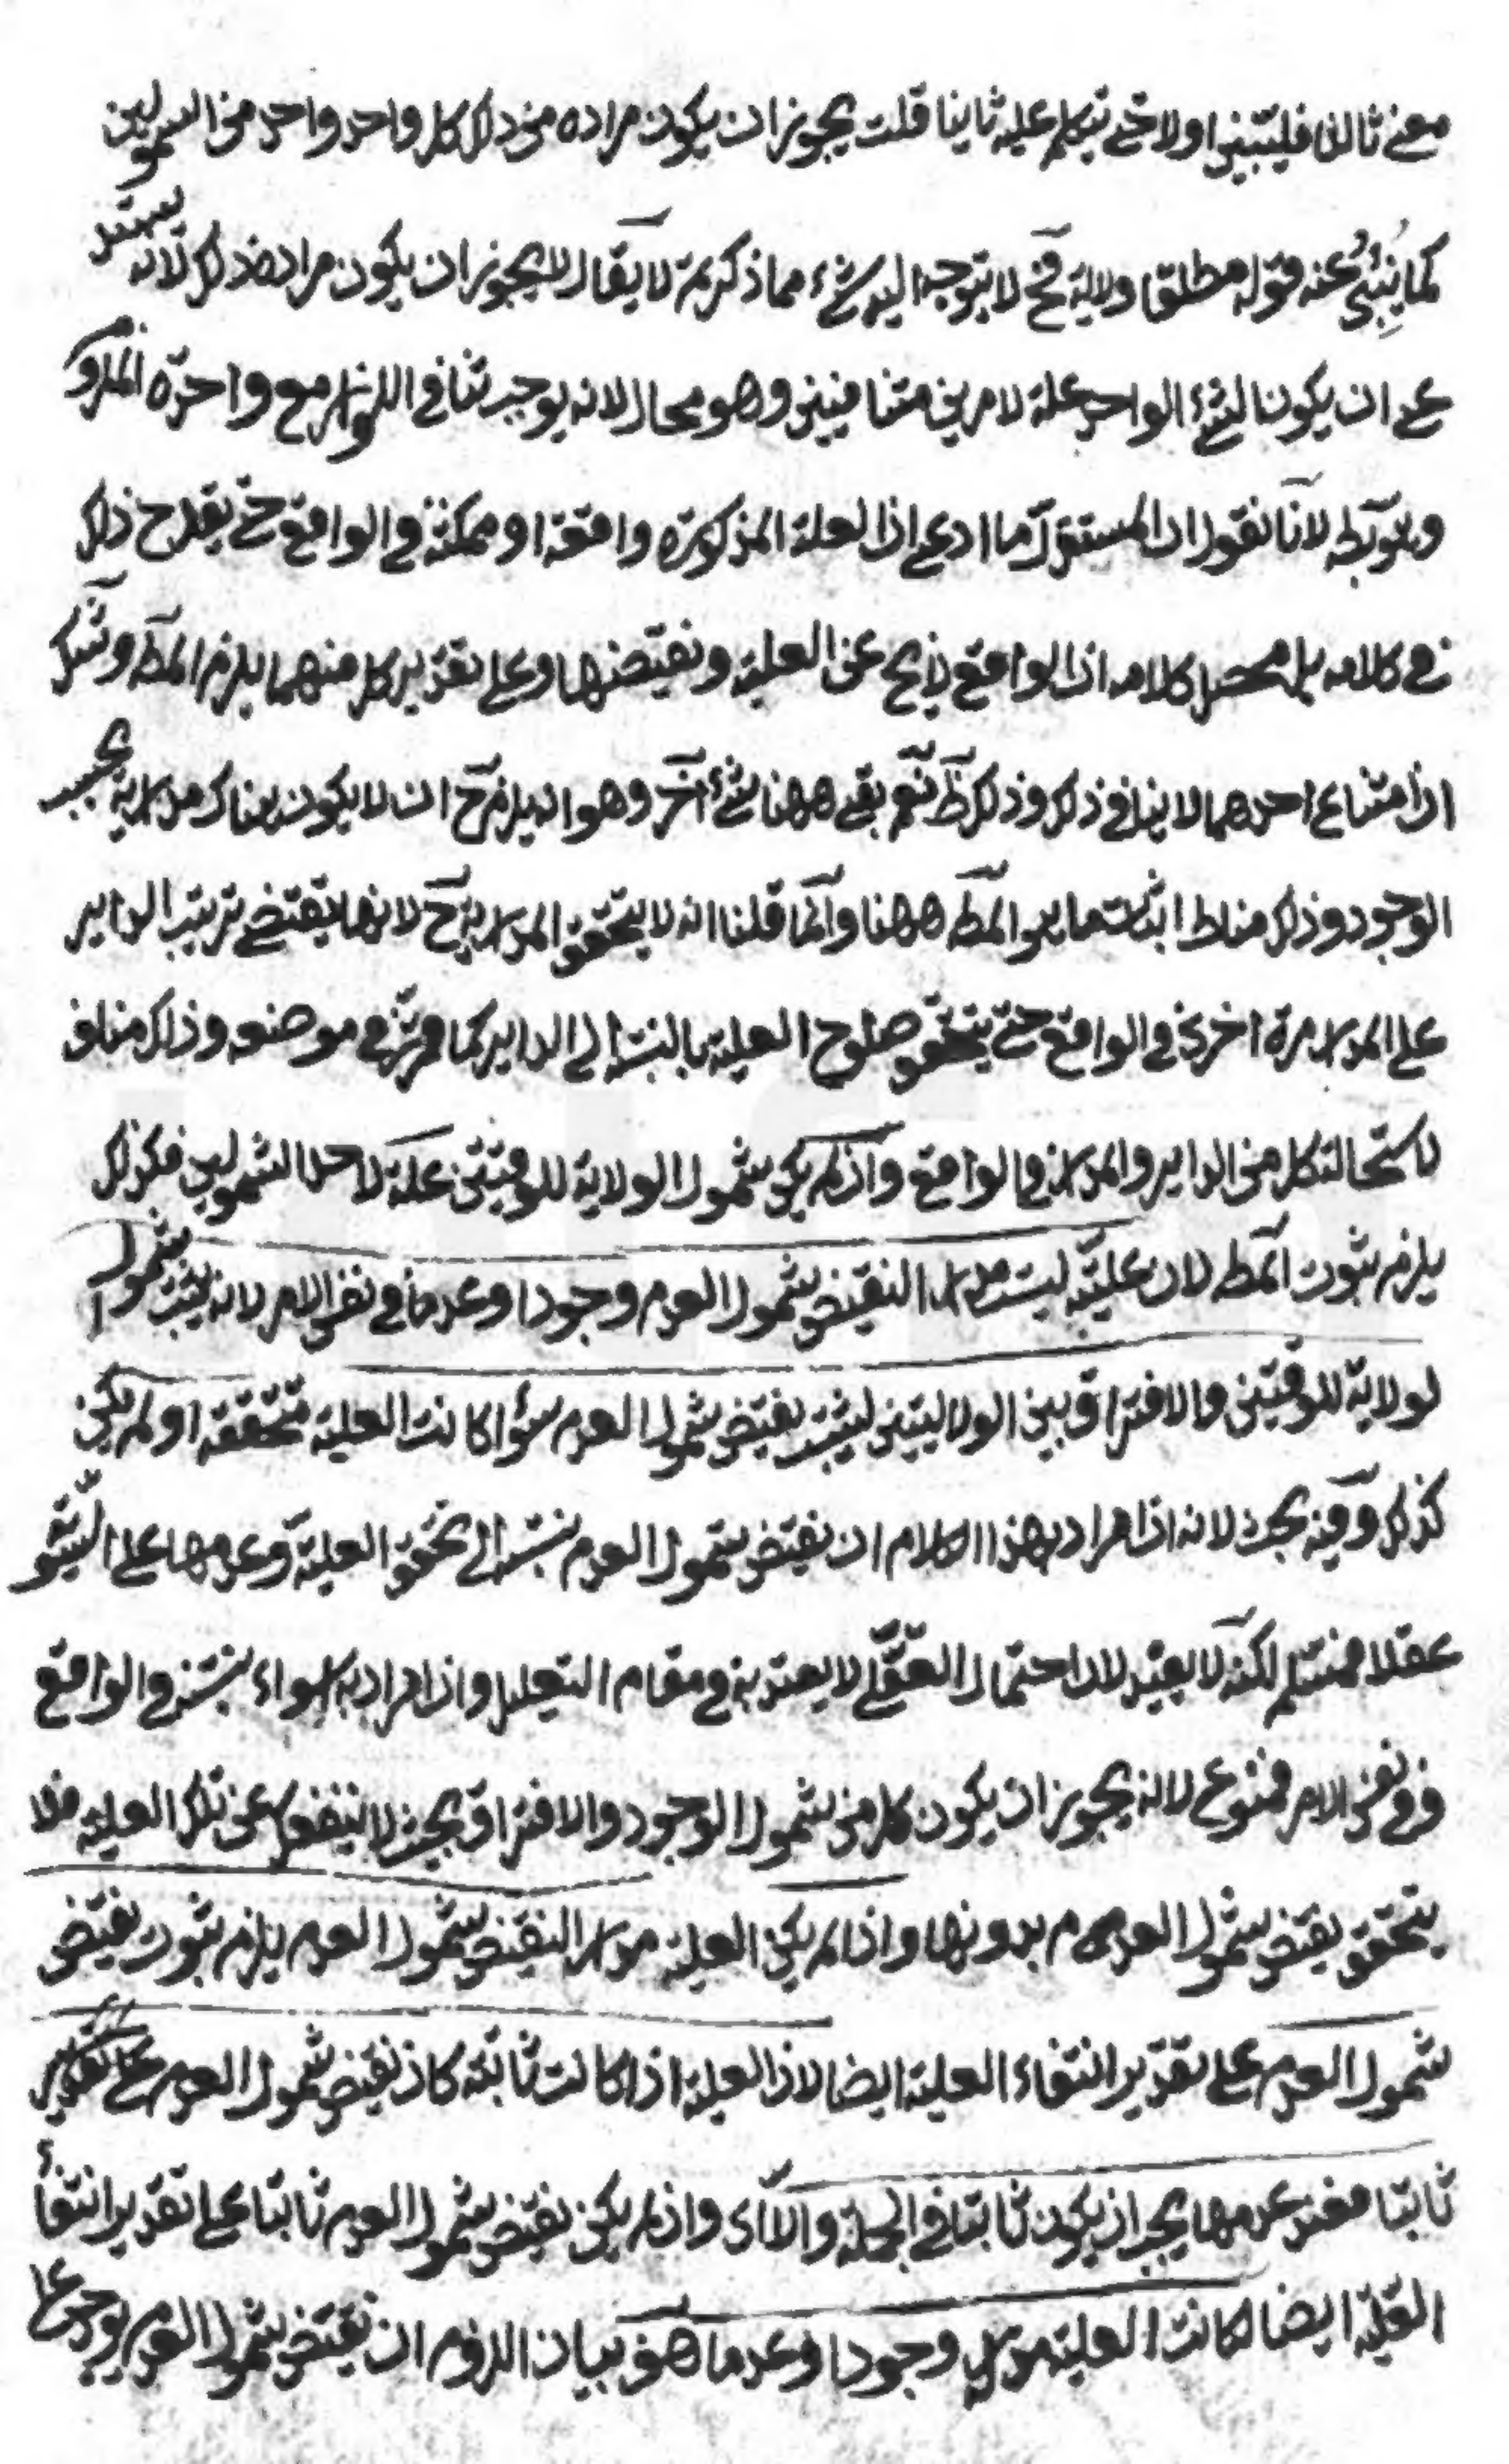 معنى ثالثا فليتبين اولا حتى يتكلم عليه ثانيا قلت يجوز ان يكون مراده من ذلك كل واحد واحد من الشمولين
كما يُنبِئُ عنه قوله مطلقا ولاية فح لا يتوجه اليه شئ مما ذكرتم لا يقال لا يجوز ان يكون مراده ذلك لانه يشتمل
على ان يكون الشئ الواحد علة لامرين متنافيين وهو محال لانه يوجب تنافى اللوازم مع وحدة الملزوم
لانا نقول ان المستدل ما ادعى ان العلة المذكورة واقعة او ممكنة فى الواقع حتى يقدح ذلك
فى كلامه بل محصل كلامه ان الواقع لا يخ عن العلية ونقيضها وعلى تقدير كل منهما يلزم المط ولا شك
ان امتناع احدهما لا ينافى ذلك وذلك ظ نعم بقى ههنا شئ آخر وهو انه يلزم ح ان لا يكون هناك مدارية بحسب
الوجود وذلك مناط اثبات ما هو المط ههنا وانما قلنا انه لا يتحقق المدارية ح لانها يقتضى ترتيب الداير
على المدار مرة اخرى فى الواقع حتى يتحقق صلوح العلية بالنسبة الى الداير كما قرر فى موضعه وذلك مناف
لاستحالة كل من الداير والمدار فى الواقع وان لم يكن شمول الولاية للوقتين علة لاحد الشمولين فكذلك
يلزم ثبوت المط لان علية ليست مدار النقيض شمول العدم وجودا وعدما فى نفس الامر لانه يثبت شمول
لولاية للوقتين والافتراق بين الولايتين ليثبت نقيض شمول العدم سواء كانت العلية متحققة او لم يكن
كذلك وفيه بحث لانه اذا اراد بهذا الكلام ان نقيض شمول العدم نسبته الى تحقق العلية وعدمها على السوية
عقلا فمسلم لكنه لا يفيد لان احتمال العقلى لا يعتد به فى مقام التعليل واذا اراد به سواء نسبته فى الواقع
وفى نفس الامر فممنوع لانه يجوز ان يكون كل من شمول الوجود والافتراق بحيث لا ينفصل عن تلك العلية فلا
يتحقق نقيض شمول العدم بدونها واذا لم يكن العلية مدار النقيض شمول العدم يلزم ثبوت نقيض
شمول العدم على تقدير انتفاء العلية ايضا لان العلية اذا كانت ثابتة كان نقيض شمول العدم على تقدير
ثابتا فعند عدمها يجب ان يكون ثابتا فى الجملة والا اى وان لم يكن نقيض شمول العدم ثابتا على تقدير انتفاء
العلية ايضا لكانت العلية مدارا وجودا وعدما هف بيان اللزوم ان نقيض شمول العدم يوجد على